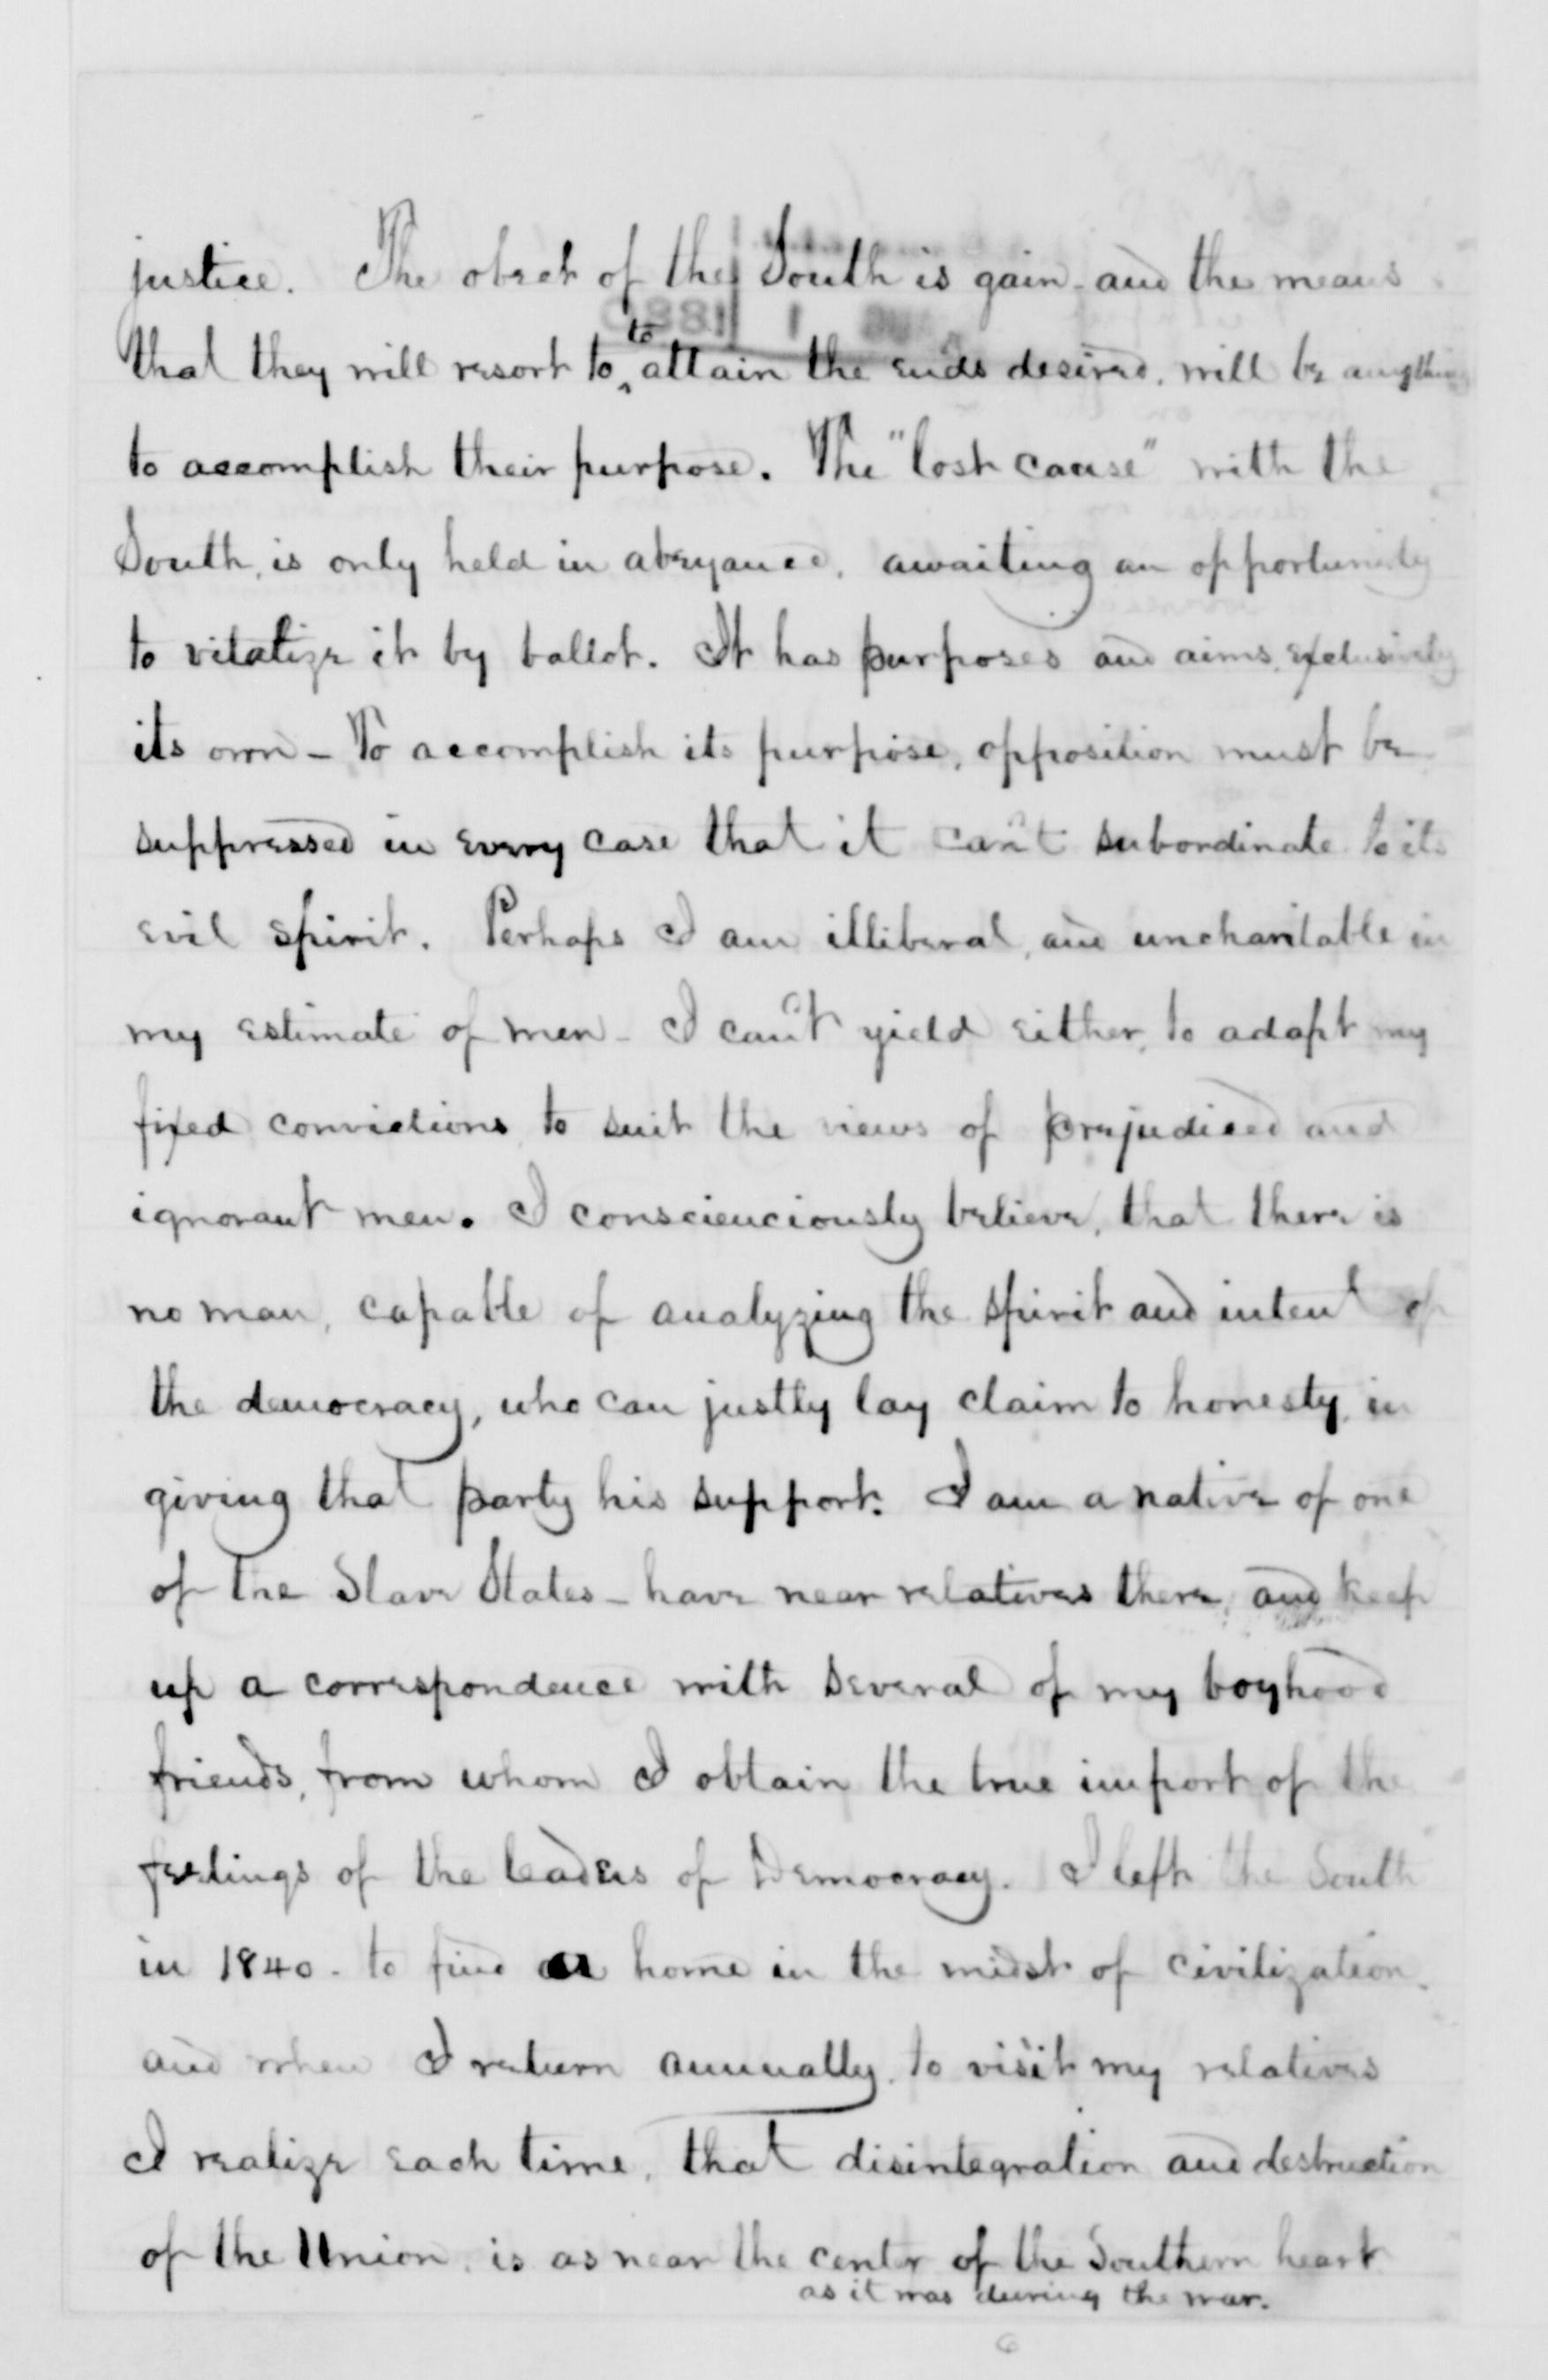 justice. The object of the South is gain - and the means
that they will resort to to attain the ends desired, will be anything
to accomplish their purpose. The "lost cause" with the
South, is only held in abeyance, awaiting an opportunity
to vitalize it by ballot. It has purposes and aims, exclusively
its own - To accomplish its purpose, opposition must be
suppressed in every case that it can't subordinate to its
evil spirit. Perhaps I am illiberal, and uncharitable in
my estimate of men - I can't yield either, to adapt my
fixed convictions, to suit the views of prejudiced and
ignorant men. I conscienciously believe, that there is
no man, capable of analyzing the spirit and intent of
the democracy, who can justly lay claim to honesty, in
giving that party his support. I am a native of one
of the Slave States - have near relatives there, and keep
up a correspondence with several of my boyhood
friends, from whom I obtain the true import of the
feelings of the leaders of Democracy. I left the South
in 1840 - to find a home in the midst of civilization.
and when I return annually, to visit my relatives
I realize each time, that disintegration and destruction
of the Union, is as near the center of the Southern heart
as it was during the war.
6